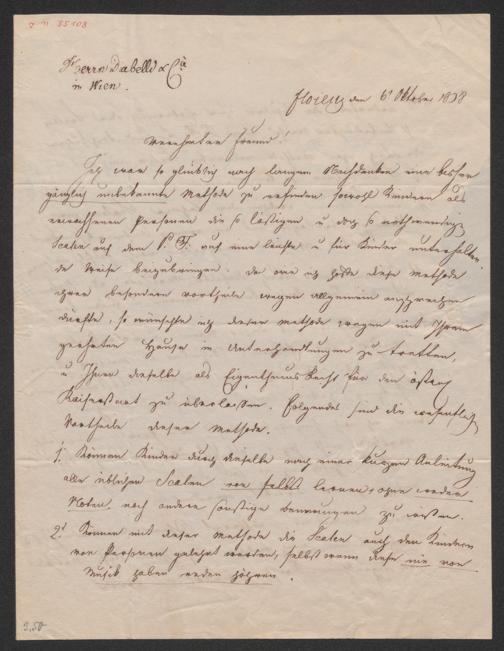 7 n 35108
Herrn Diabelli & Ca
in Wien.
Florenz den 6t Oktober 1838
Verehrter Freund!
Ich war so glücklich nach langem Nachdenken eine bisher
gänzlich unbekannte Methode zu erfinden sowohl Kindern als
erwachsenen Personen die so lästigen u doch so nothwendigen
Scalen auf dem P. F. auf eine leichte u für Kinder unterhalten-
de Weise beizubringen. Da wie ich hoffe diese Methode
ihrer besondern Vortheile wegen allgemein ansprechen
dürfte, so wünschte ich dieser Methode wegen mit Ihrem
geehrten Hause in Unterhandlungen zu tretten,
u Ihnen dieselbe als Eigenthums Recht für den östery
Kaiserstaat zu überlassen. Folgendes sind die wesentlichen
Vortheile dieser Methode.
1t Können Kinder durch dieselbe nach einer kurzen Anleitung
alle üblichen Scalen von selbst lernen, ohne weder
Noten, noch andere sonstige benennungen zu wissen.
2t Können mit dieser Methode die Scalen auch den Kindern
von Personen gelehrt werden, selbst wenn diese nie von
Musik haben reden hören.
3,50